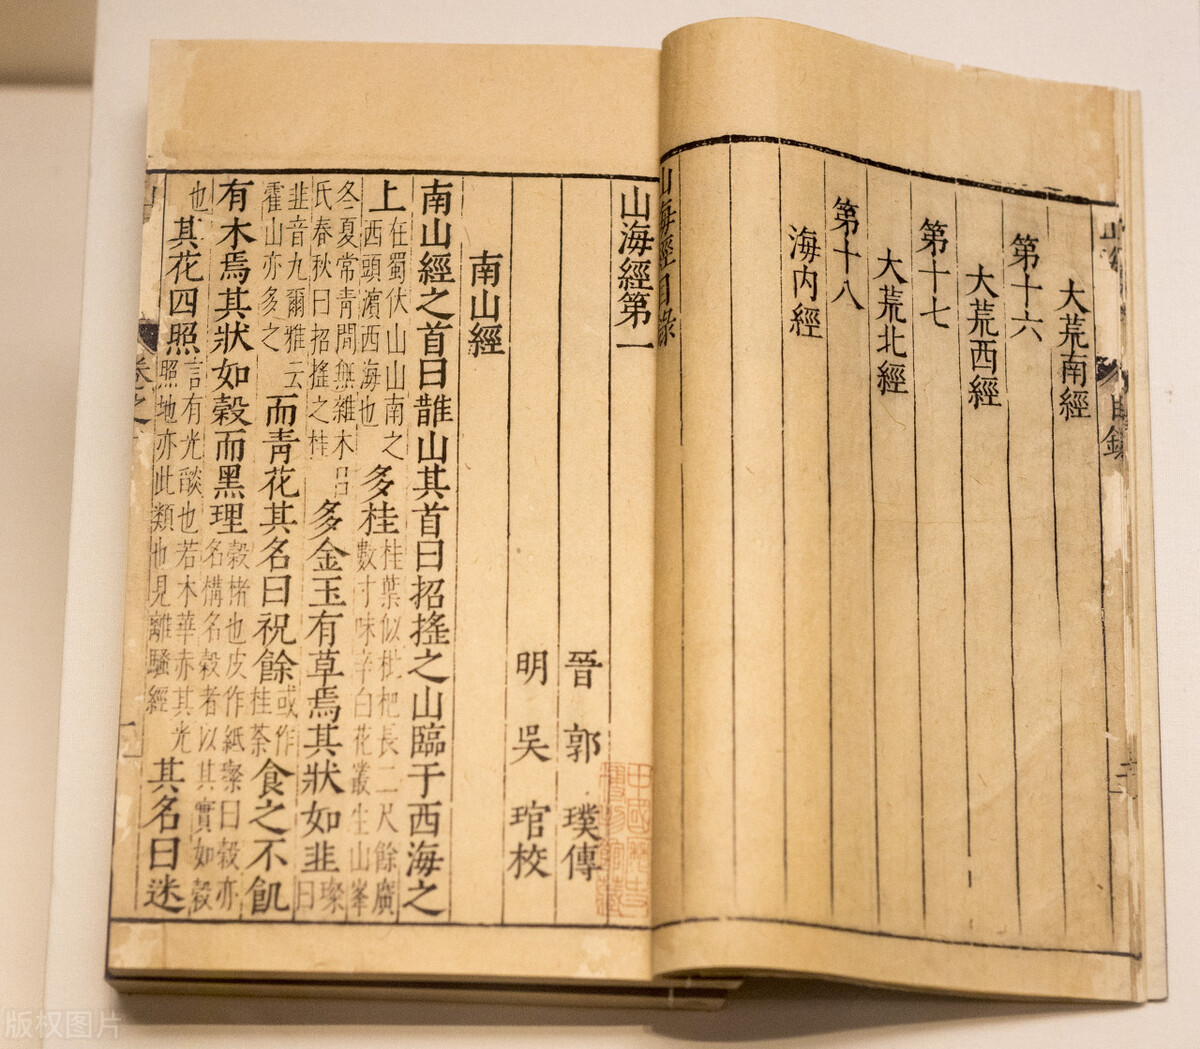 大荒南經
第十六
大荒西經
第十七
大荒北經
第十八
海內經
山海經目錄
山海經第一
晉 郭 璞傳
明 吳 琯校
南山經
南山經之首曰䧿山其首曰招搖之山臨于西海之
上在蜀伏山山南之西頭濱西海也多桂桂葉似枇杷長二尺餘廣數寸味辛白花叢生山峯
冬夏常青間無雜木呂氏春秋曰招搖之桂多金玉有草焉其狀如韭璨曰
韭音九爾雅云霍山亦多之而青花其名曰祝餘或作桂荼食之不飢
有木焉其狀如穀而黑理穀楮也皮作紙璨曰穀亦名構名穀者以其實如穀
也其花四照言有光燄也若木華赤其光照地亦此類也見離騷經其名曰迷
版权图片